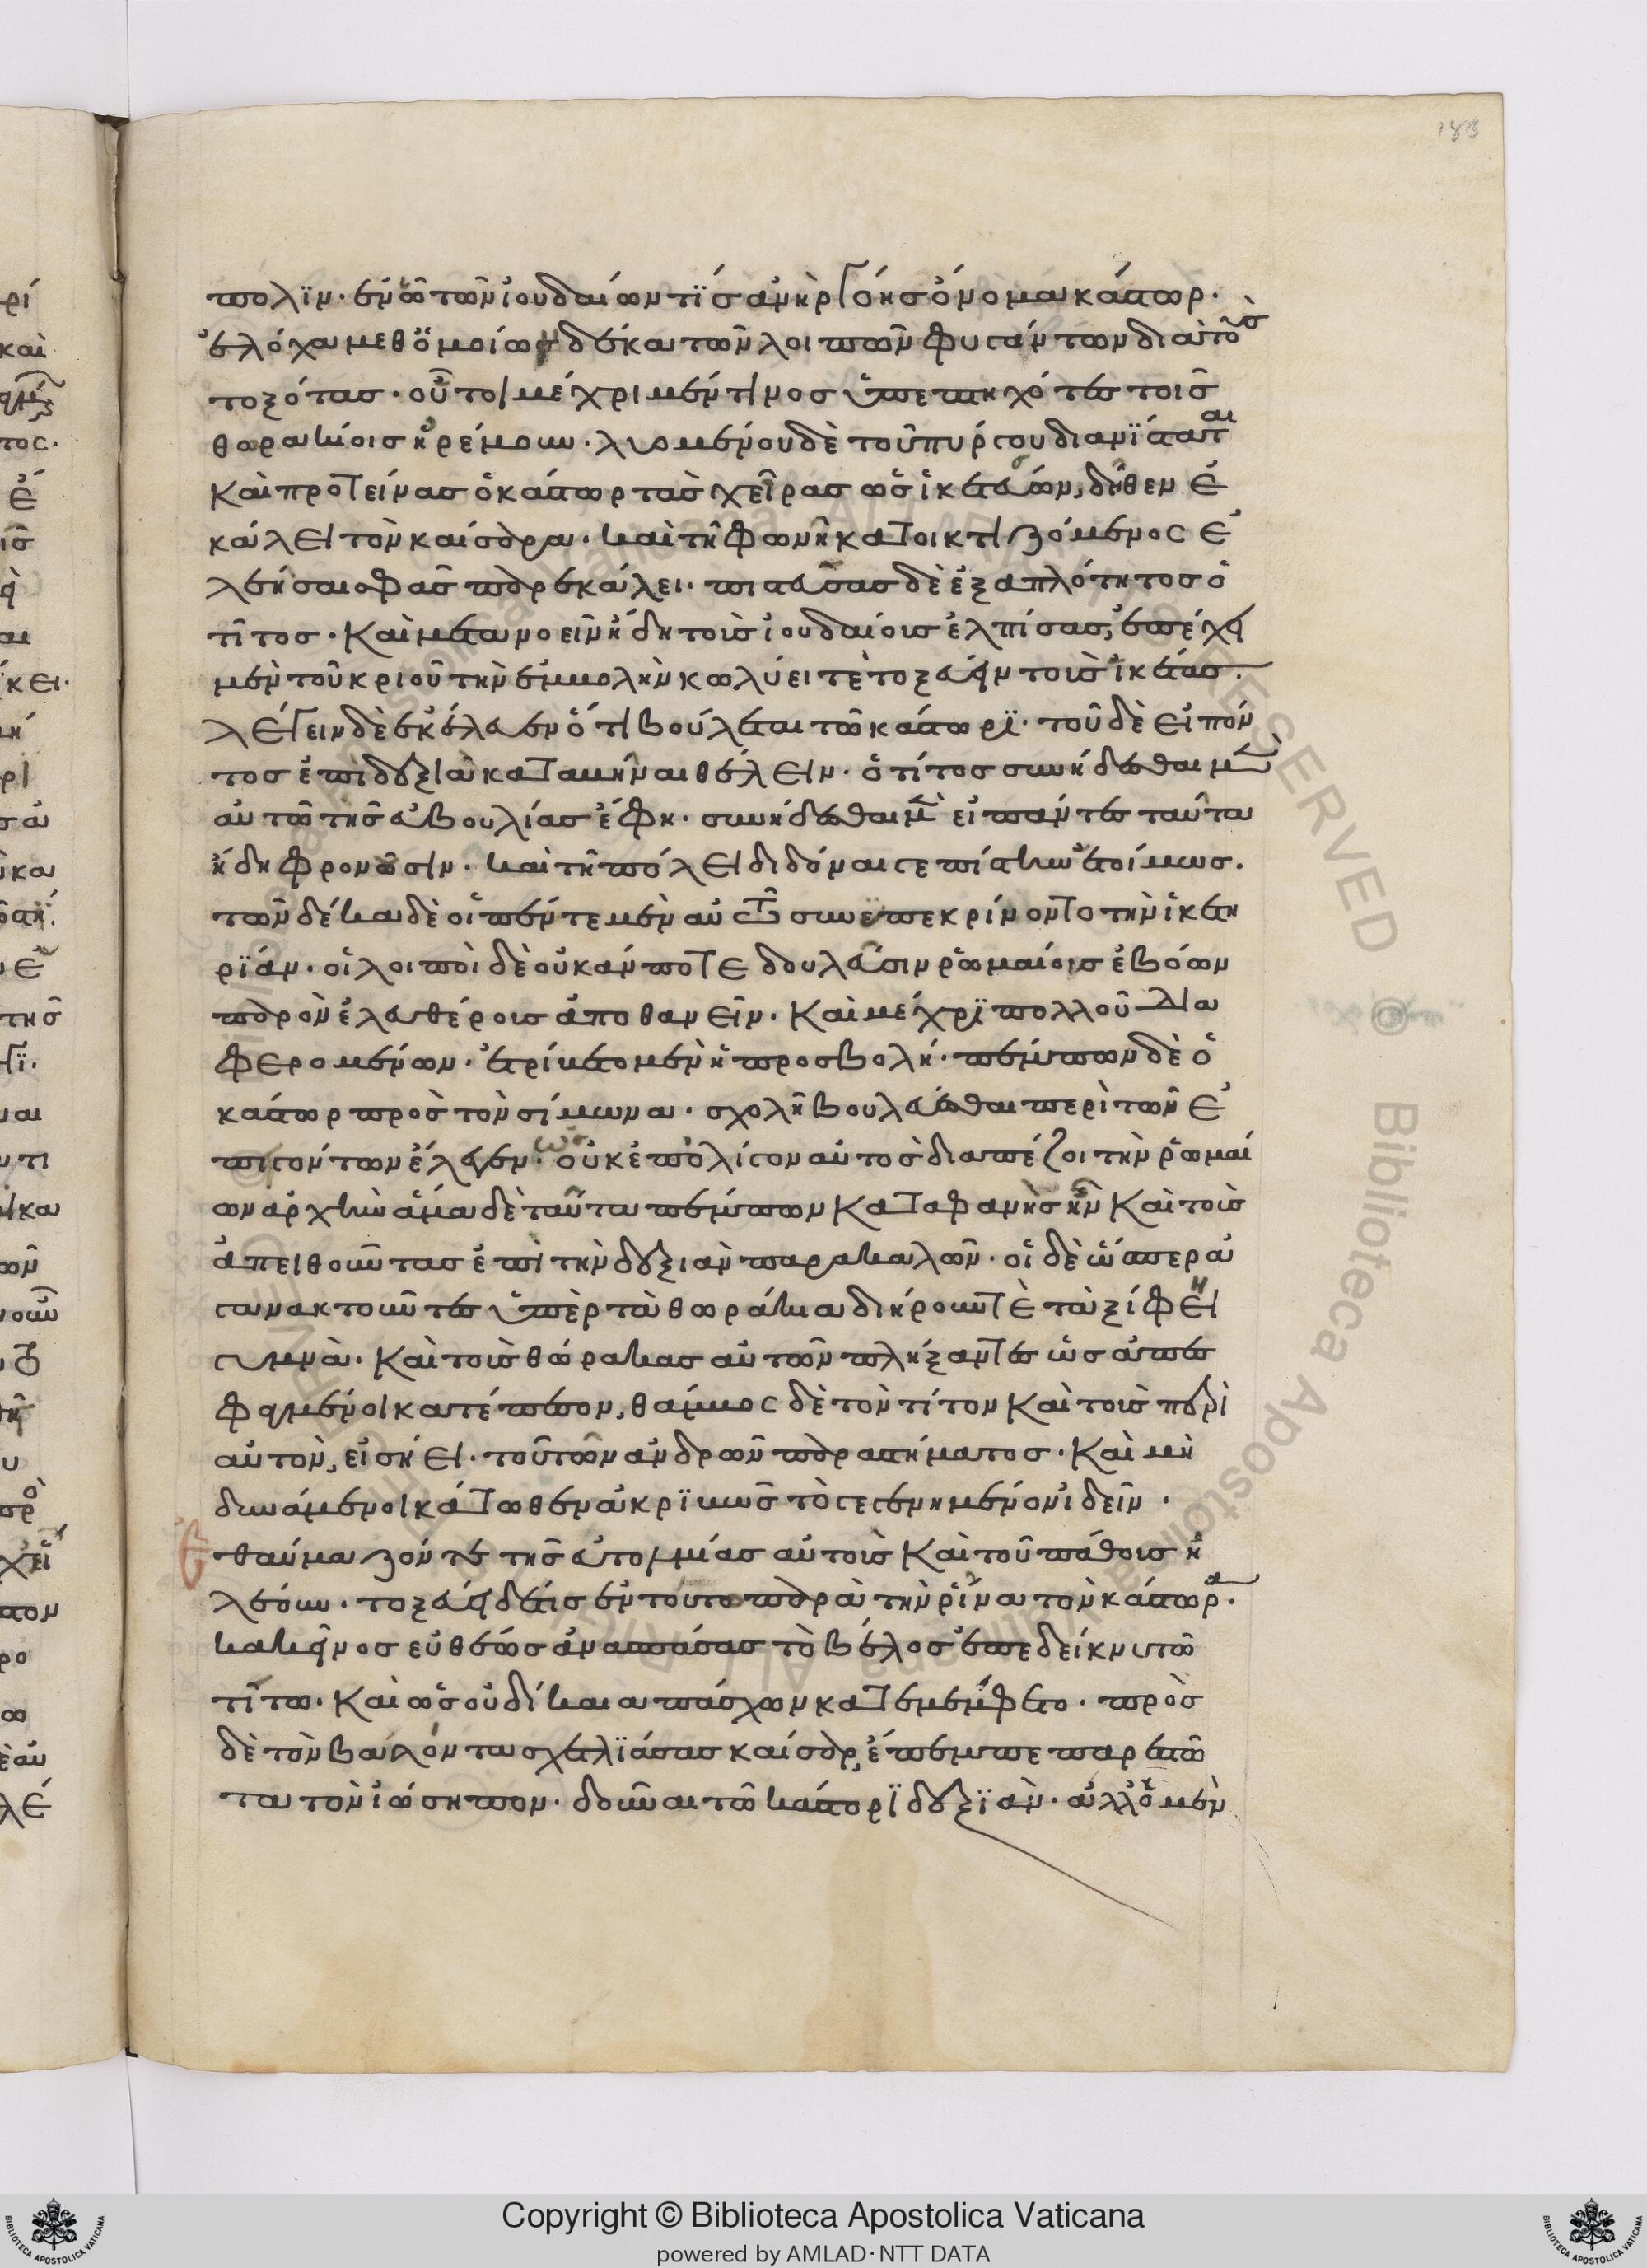 183
πόλϊν· ἐν ὧ τῶν ἰουδαίων τϊς ἀνὴρ γόης ὄνομα κάστωρ·
ἐλόχα μεθ ὁμοίων δέκα τῶν λοιπῶν φυγόντων διὰ τοὺς
τοξότας· οὗτοι μέχρι μέν τινος ὑπεπτηχότες τοῖς
θωρακίοις ἠρέμουν· λυομένου δὲ τοῦ πύργου διανΐστανται
καὶ προτείνας ὁ κάστωρ τὰς χεῖρας ὡς ἱκετεύων, δῆθεν ἐ
κάλει τὸν καίσαρα· καὶ τῇ φωνῇ κατοικτιζόμενος ἐ
λεῆσαι σφᾶς παρεκάλει· πιστεύσας δὲ ἐξ ἁπλότητος ὁ
τῖτος· καὶ μετανοεῖν ἤδη τοὺς ἰουδαίους ἐλπίσας, ἐπέχει
μὲν τοῦ κριοῦ τὴν ἐμβολὴν κωλύει τὲ τοξεύειν τοὺς ἱκέτας·
λέγειν δὲ ἐκέλευεν ὅτι βούλεται τῶ κάστωρϊ· τοῦ δὲ εἰπόν
τος ἐπὶ δεξιᾶ καταβῆναι θέλειν· ὁ τίτος συνήδεσθαι μὲν
αὐτῶ τῆς εὐβουλίας ἔφη· συνήδεσθαι μὲν εἰ πάντες ταῦτα
ἤδη φρονοῦσιν· καὶ τῇ πόλει διδόναι πίστιν ἑτοίμως·
τῶν δέκα δὲ οἱ πέντε μὲν αὐτῶ συνϋπεκρίνοντο τὴν ἱκετη
ρϊάν· οἱ λοιποὶ δὲ οὐκ ἄν ποτε δουλεύσιν ῥωμαίοις ἐβόων
παρὸν ἐλευθέροις ἀποθανεῖν· καὶ μέχρϊ πολλοῦ δια
φερομένων· ἐτρίβετο μὲν ἡ προσβολή· πέμπων δὲ ὁ
κάστωρ πρὸς τὸν σίμωνα· σχολῇ βουλεύεσθαι περὶ τῶν ἐ
πιγόντων ἔλεγεν· ὡς οὐκ ἐπολίγον αὐτὸς διαπαίζοι τὴν ῥωμαί
ων ἀρχὴν ἅμα δὲ ταῦτα πέμπων καταφανὴς ἦν καὶ τοὺς
ἀπειθοῦντας ἐπὶ τὴν δεξιὰν παρακαλῶν· οἱ δὲ ὥσπερ ἀ
γανακτοῦντες ὑπὲρ τὰ θωράκια διήρουν τὲ τὰ ξίφη
γυμνὰ· καὶ τοὺς θώρακας αὐτῶν πλήξαντες ὡς ἀποσ
φαγμένοι κατέπεσον, θάμβος δὲ τὸν τίτον καὶ τοὺς περὶ
αὐτὸν, εἰσήει· τοῦ τῶν ἀνδρῶν παραστήματος· καὶ μὴ
δυνάμενοι κάτωθεν ἀκρϊβῶς τὸ γεγενημένον ἰδεῖν·
ἐθαύμαζόν τε τῆς εὐτολμίας αὐτοὺς καὶ τοῦ πάθους ἠ
λέουν· τοξεύει δέ τις ἐν τούτω παρὰ τὴν ῥῖνα τὸν κάστωρα·
κἀκεῖνος εὐθέως ἀνασπάσας τὸ βέλος ἐπεδείκνυ τῶ
τίτω· καὶ ὡς οὐ δίκαια πάσχων κατεμέμφετο· πρὸς
δὲ τὸν βαλόντα σχετλϊάσας καίσαρ, ἔπεμπε παρεστῶ
τα τὸν ἰώσηπον· δοῦναι τῶ κάστορϊ δεξϊάν· ἀλλ ὁ μὲν